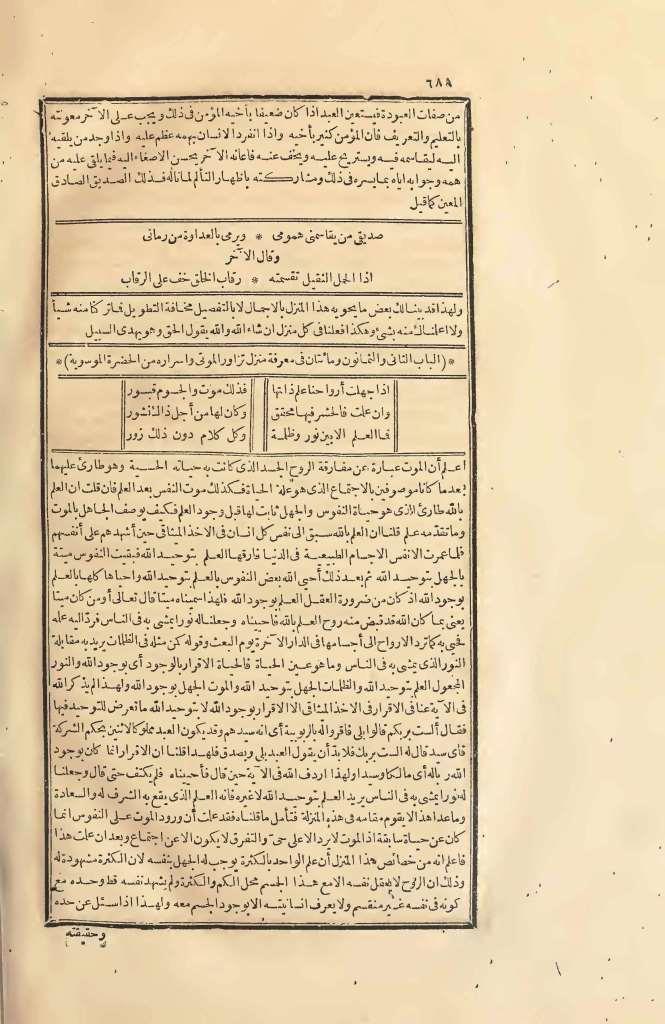 ٦٨٩
من صفات العبودة فيستعين العبد اذا كان ضعيفا بأخيه المؤمن فى ذلك ويجب على الآخر معونته
بالتعليم والتعريف فان المؤمن كثير بأخيه واذا انفرد الانسان بهمه عظم عليه واذا وجد من يلقيه
اليه ليقاسمه فيه ويستريح عليه ويخف عنه فاعانه الآخر بحسن الاصغاء اليه فيما يلقى عليه من
همه وجوابه اياه بما يسره فى ذلك ومشاركته باظهار التألم لما ناله فذلك الصديق الصادق
المعين كما قيل
صديقى من يقاسمنى همومى * ويرمى بالعداوة من رمانى
وقال الآخر
اذا الحمل الثقيل تقسمته * رقاب الخلق خف على الرقاب
ولهذا قد بينا لك بعض ما يحويه هذا المنزل بالاجمال لا بالتفصيل مخافة التطويل فما تركنا منه شيأ
ولا اعلمناك منه بشئ وهكذا افعلنا فى كل منزل ان شاء الله والله يقول الحق وهو يهدى السبيل
* (الباب الثانى والثمانون ومائتان فى معرفة منزل تزاور الموتى واسراره من الحضرة الموسوية) *
اذا جهلت أرواحنا علم ذاتها فذلك موت والجسوم قبور
وان علمت فالحشر فيها محقق وكان لها من أجل ذاك نشور
فما العلم الا بين نور وظلمة وكل كلام دون ذلك زور
اعلم أن الموت عبارة عن مفارقة الروح الجسد الذى كانت به حياته الحسية وهو طارئ عليهما
بعد ما كانا موصوفين بالاجتماع الذى هو علة الحياة فكذلك موت النفس بعد العلم فان قلت ان العلم
بالله طارئ الذى هو حياة النفوس والجهل ثابت لها قبل وجود العلم فكيف يوصف الجاهل بالموت
وما تقدمه علم قلنا ان العلم بالله سبق الى نفس كل انسان فى الاخذ الميثاقى حين أشهدهم على أنفسهم
فلما عمرت الانفس الاجسام الطبيعية فى الدنيا فارقها العلم بتوحيد الله فبقيت النفوس ميتة
بالجهل بتوحيد الله ثم بعد ذلك أحيى الله بعض النفوس بالعلم بتوحيد الله واحياها كلها بالعلم
بوجود الله اذ كان من ضرورة العقل العلم بوجود الله فلهذا سميناه ميتا قال تعالى أو من كان ميتا
يعنى بما كان الله قد قبض منه روح العلم بالله فاحييناه وجعلنا له نورا يمشى به فى الناس فرد اليه علمه
فحيى به كما ترد الارواح الى أجسامها فى الدار الآخرة يوم البعث وقوله كمن مثله فى الظلمات يريد به مقابلة
النور الذى يمشى به فى الناس وما هو عين الحياة فالحياة الاقرار بالوجود أى بوجود الله والنور
المجعول العلم بتوحيد الله والظلمات الجهل بتوحيد الله والموت الجهل بوجود الله ولهذا لم يذكر الله
فى الآية عنا فى الاقرار فى الاخذ الميثاقى الا الاقرار بوجود الله لا بتوحيد الله ما تعرض للتوحيد فيها
فقال ألست بربكم قالوا بلى فاقروا له بالربوبية أى انه سيدهم وقد يكون العبد مملوكا لاثنين بحكم الشركة
فاى سيد قال له الست بربك فلا بد أن يقول العبد بلى ويصدق فلهذا قلنا ان الاقرار انما كان بوجود
الله ربا له أى مالكا وسيدا ولهذا اردف الله فى الآية حين قال فأحييناه فلم يكتف حتى قال وجعلنا
له نورا يمشى به فى الناس يريد العلم بتوحيد الله لا غيره فانه العلم الذى يقع به الشرف له والسعادة
وما عدا هذا لا يقوم مقامه فى هذه المنزلة فتأمل ما قلناه فقد علمت أن ورود الموت على النفوس انما
كان عن حياة سابقة اذ الموت لا يرد الا على حى والتفرق لا يكون الا عن اجتماع وبعد ان علمت هذا
فاعلم انه من خصائص هذا المنزل أن علم الواحد بالكثرة يوجب له الجهل بنفسه لان الكثرة مشهودة له
وذلك ان الروح لا يعقل نفسه الا مع هذا الجسم محل الكم والكثرة ولم يشهد نفسه قط وحده مع
كونه فى نفسه غير منقسم ولا يعرف انسانيته الا بوجود الجسم معه ولهذا اذا سئل عن حده
وحقيقته